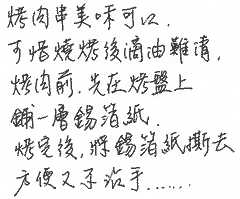 烤肉串美味可以.
可惜燒烤後滴油難清,
烤肉前.先在烤盤上
鋪一層錫箔紙.
烤完後,將錫箔紙撕去
方便又不沾手......